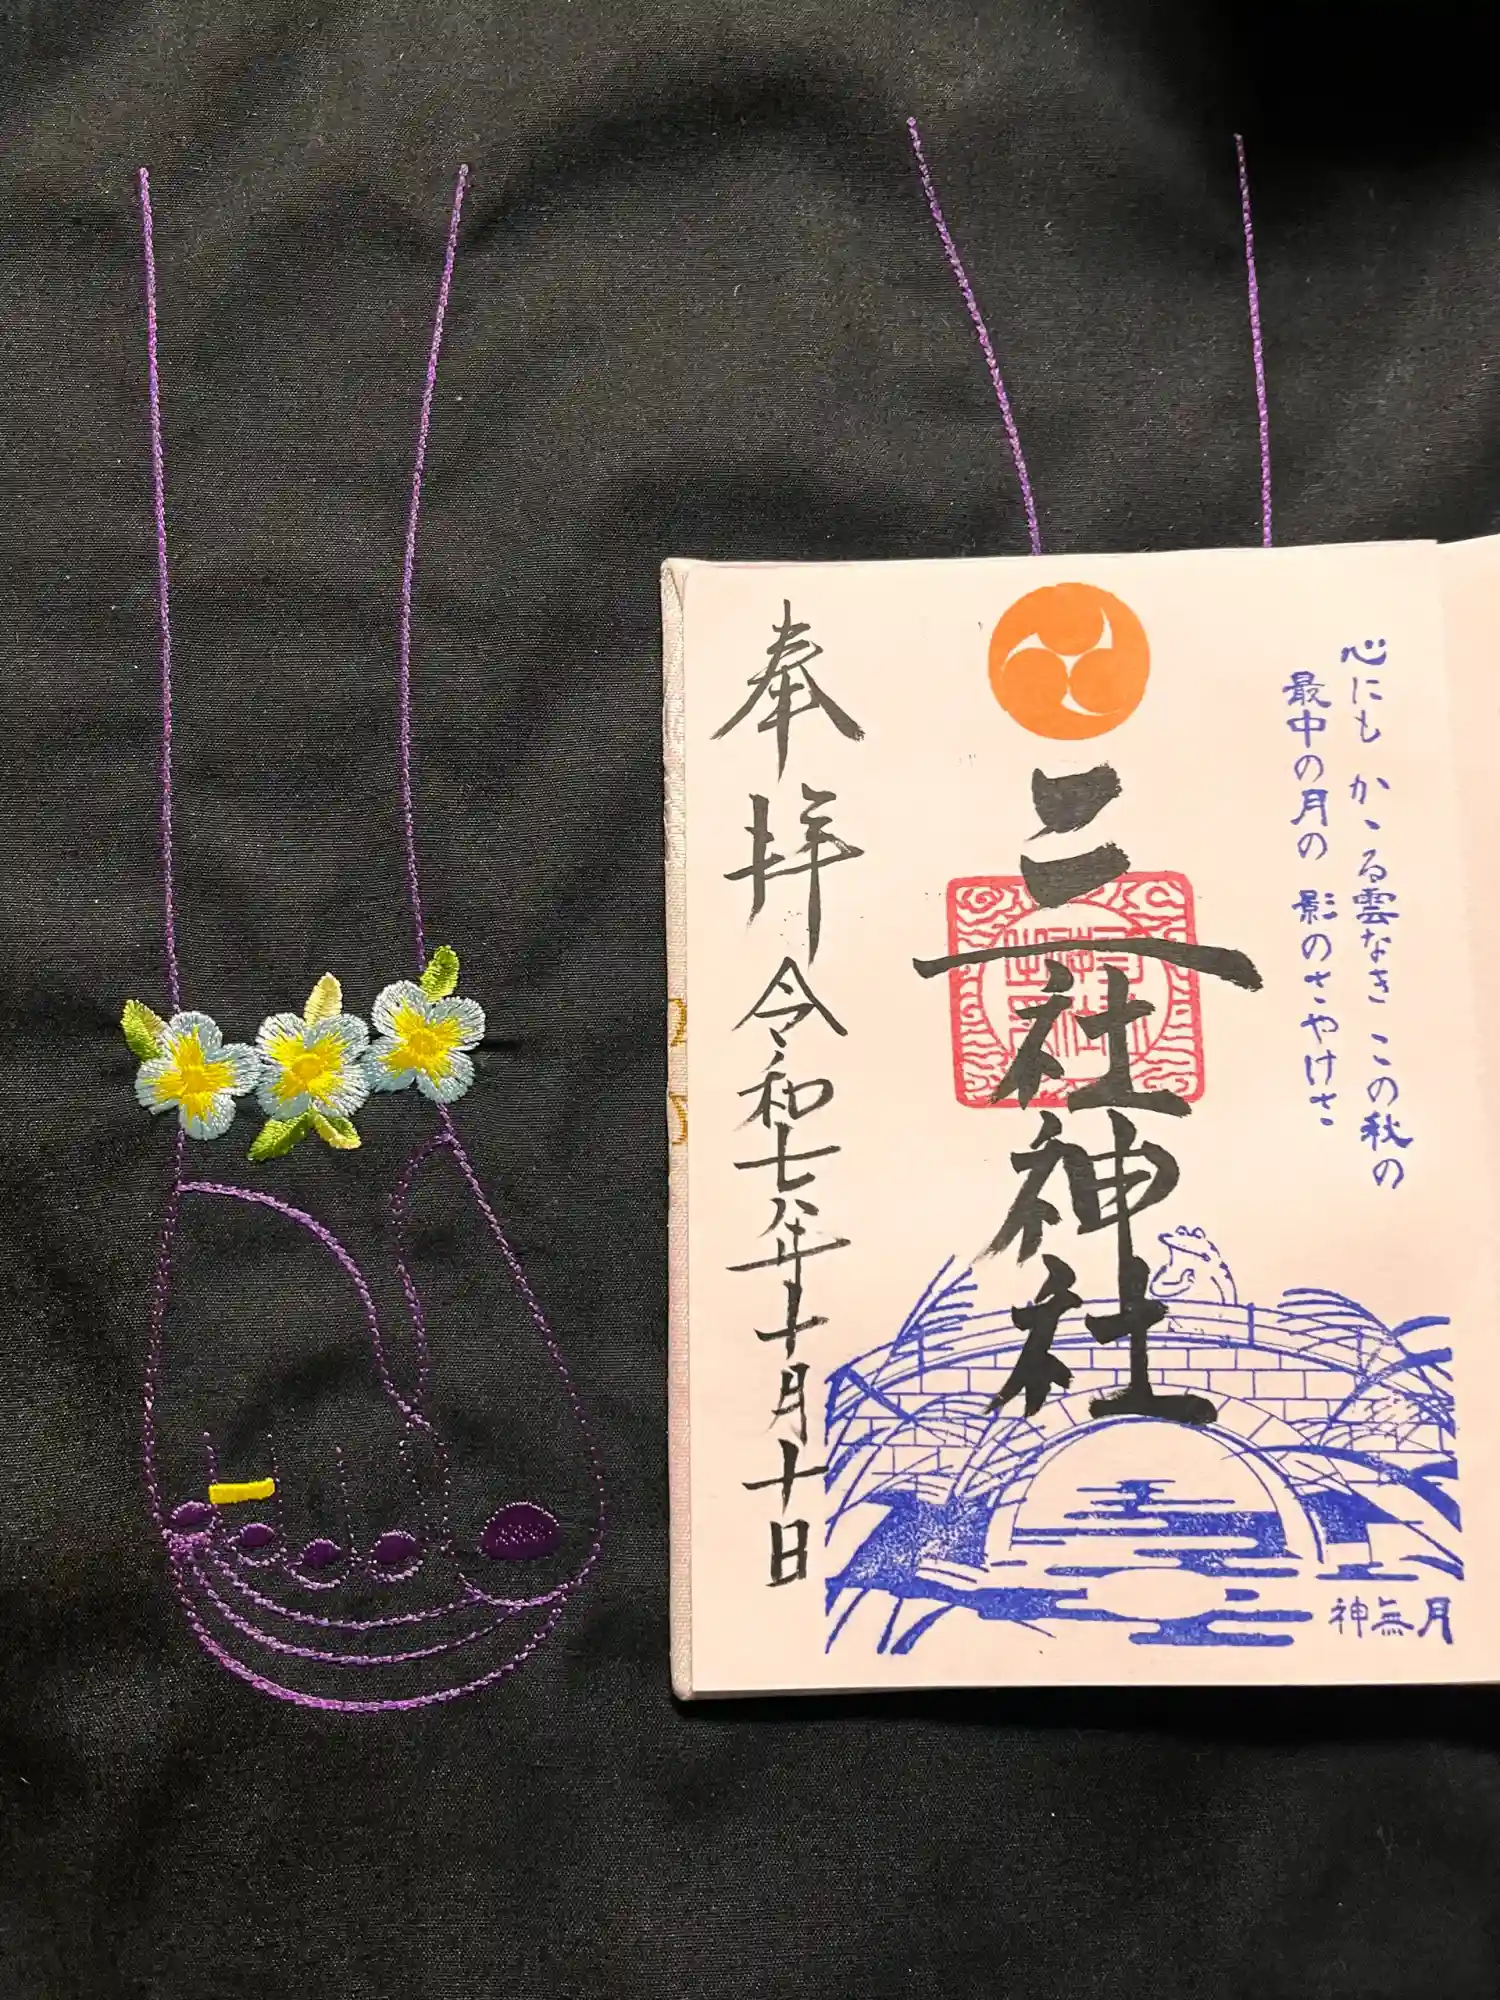 心にも かゝる雲なき この秋の
最中の月の 影のさやけさ
三社神社
奉拝 令和七年十月十日
神無月